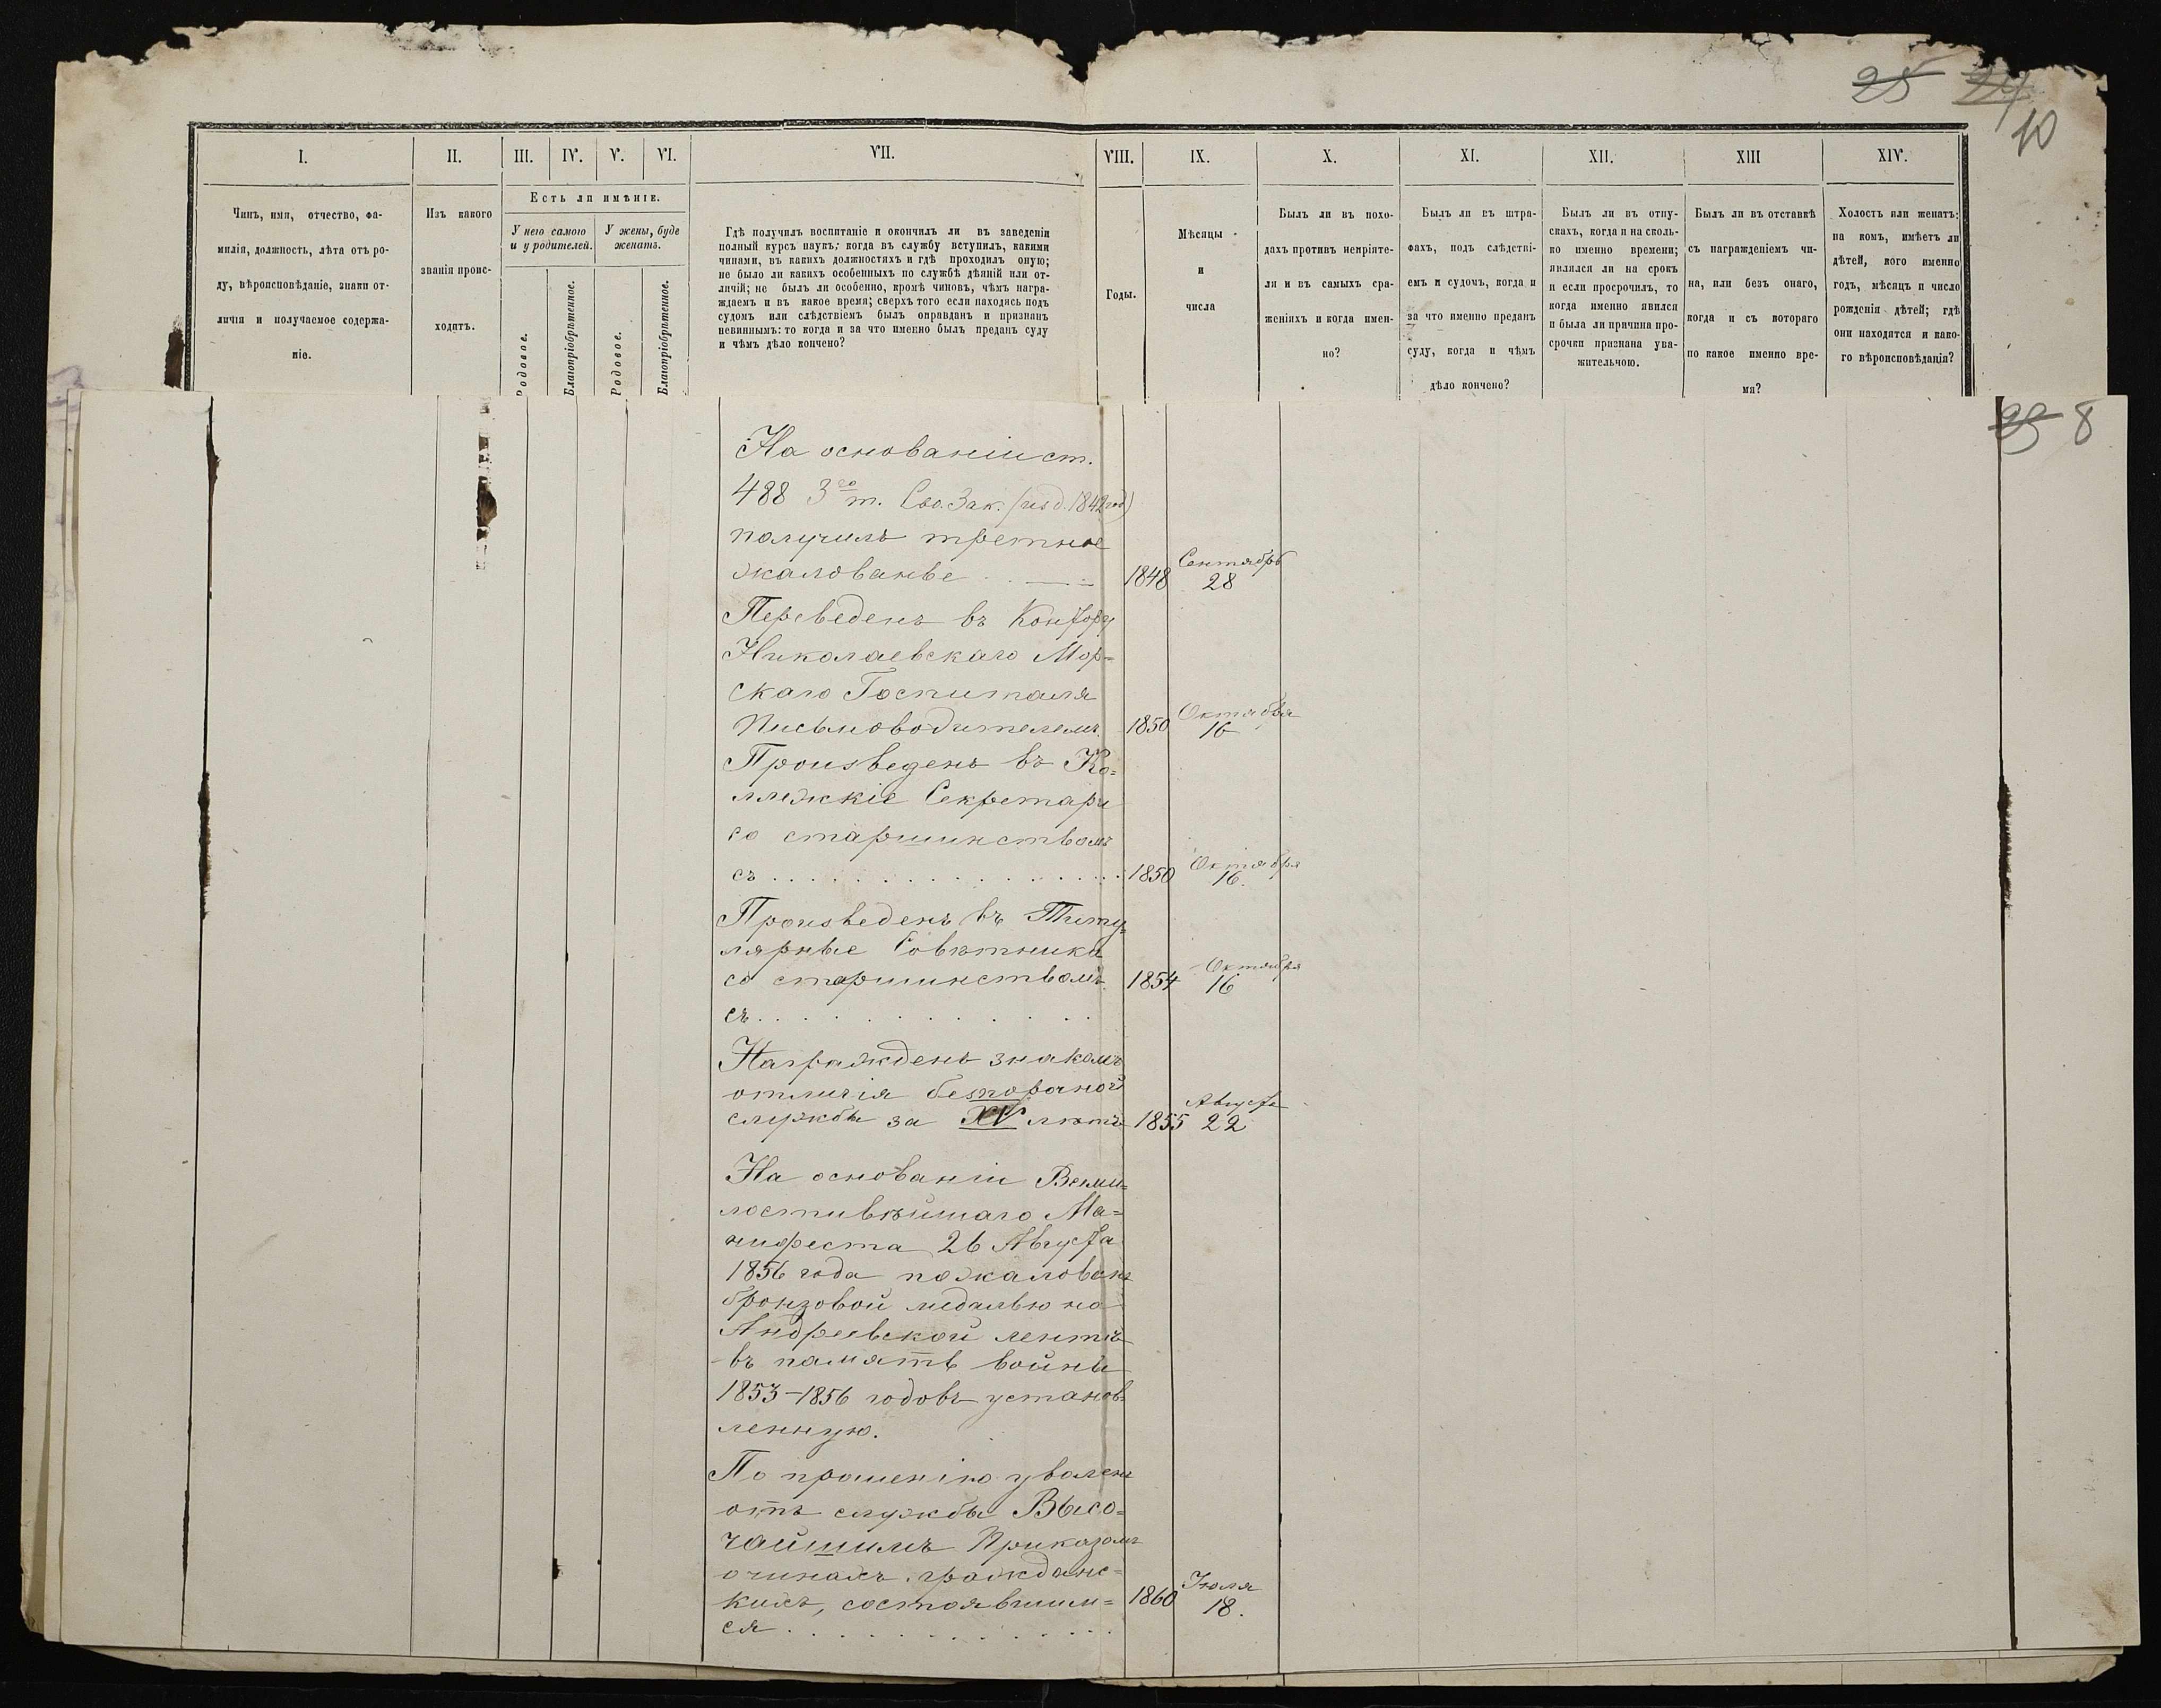 25 24
10
I.
II.
III.
IV.
V.
VI.
VII.
VIII.
IX.
X.
XI.
XII.
XIII
XIV.
Чинъ, имя, отчество, фа-
милія, должность, лѣта отъ ро-
ду, вѣроисповѣданіе, знаки от-
личія и получаемое содержа-
ніе.
Изъ какого
званія проис-
ходитъ.
Есть ли имѣніе.
У него самого
и у родителей.
У жены, буде
женатъ.
Родовое.
Благопріобрѣтенное.
Родовое.
Благопріобрѣтенное.
Гдѣ получилъ воспитаніе и окончилъ ли въ заведеніи
полный курсъ наукъ; когда въ службу вступилъ, какими
чинами, въ какихъ должностяхъ и гдѣ проходилъ оную;
не было ли какихъ особенныхъ по службѣ дѣяній или от-
личій; не былъ ли особенно, кромѣ чиновъ, чѣмъ награ-
ждаемъ и въ какое время; сверхъ того если находясь подъ
судомъ или слѣдствіемъ былъ оправданъ и признанъ
невиннымъ: то когда и за что именно былъ преданъ суду
и чѣмъ дѣло кончено?
Годы.
Мѣсяцы
и
числа
Былъ ли въ похо-
дахъ противъ непріяте-
ля и въ самыхъ сра-
женіяхъ и когда имен-
но?
Былъ ли въ штра-
фахъ, подъ слѣдстві-
емъ и судомъ, когда и
за что именно преданъ
суду, когда и чѣмъ
дѣло кончено?
Былъ ли въ отпу-
скахъ, когда и на сколь-
ко именно времени;
являлся ли на срокъ
и если просрочилъ, то
когда именно явился
и была ли причина про-
срочки признана ува-
жительною.
Былъ ли въ отставкѣ
съ награжденіемъ чи-
на, или безъ онаго,
когда и съ котораго
по какое именно вре-
мя?
Холостъ или женатъ:
на комъ, имѣетъ ли
дѣтей, кого именно
годъ, мѣсяцъ и число
рожденія дѣтей; гдѣ
они находятся и како-
го вѣроисповѣданія?
8
На основаніи ст.
488 3го т. Сво. Зак. (изд. 1842 год)
получилъ третное
жалованье 1848 Сентября 28
Переведенъ въ Контору
Николаевскаго Мор=
скаго Госпиталя
Письмоводителемъ. 1850 Октября 16
Произведенъ въ Ко=
ллежкіе Секретари
со старшинствомъ
съ . . . 1850 Октября 16.
Произведенъ въ Титу=
лярные Совѣтника
со старшинствомъ 1854 Октября 16
съ . . .
Награжденъ знакомъ
отличія безпорочной
службы за XV лѣтъ 1855 Августа 22
На основаніи Всеми=
лостивѣйшаго Ма=
нифеста 26 Августа
1856 года пожалованъ
бронзовой медалью на
Андреевской лентѣ
въ память войны
1853-1856 годовъ установ=
ленную.
По прошенію уволенъ
отъ службы Высо=
чайшимъ Приказомъ
о чинахъ граждане=
кихъ, состоявшим=
ся . . . 1860 Іюля 18.